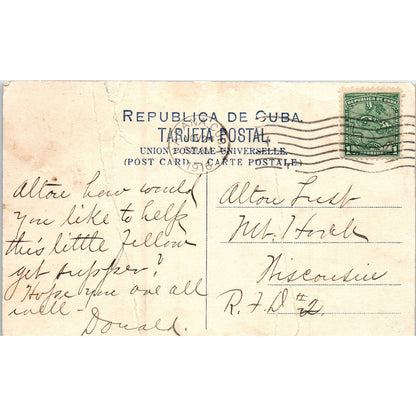 REPUBLICA DE CUBA.
TARJETA POSTAL
UNION POSTALE UNIVERSELLE.
(POST CARD) – CARTE POSTALE)
REPUBLICA DE CUBA
1 1
1910
Alton how would
you like to help
this little fellow
get supper?
Hope you are all
well -
Donald.
Alton Lust
Mt. Horeb
Wisconsin
R. F. D. # 2